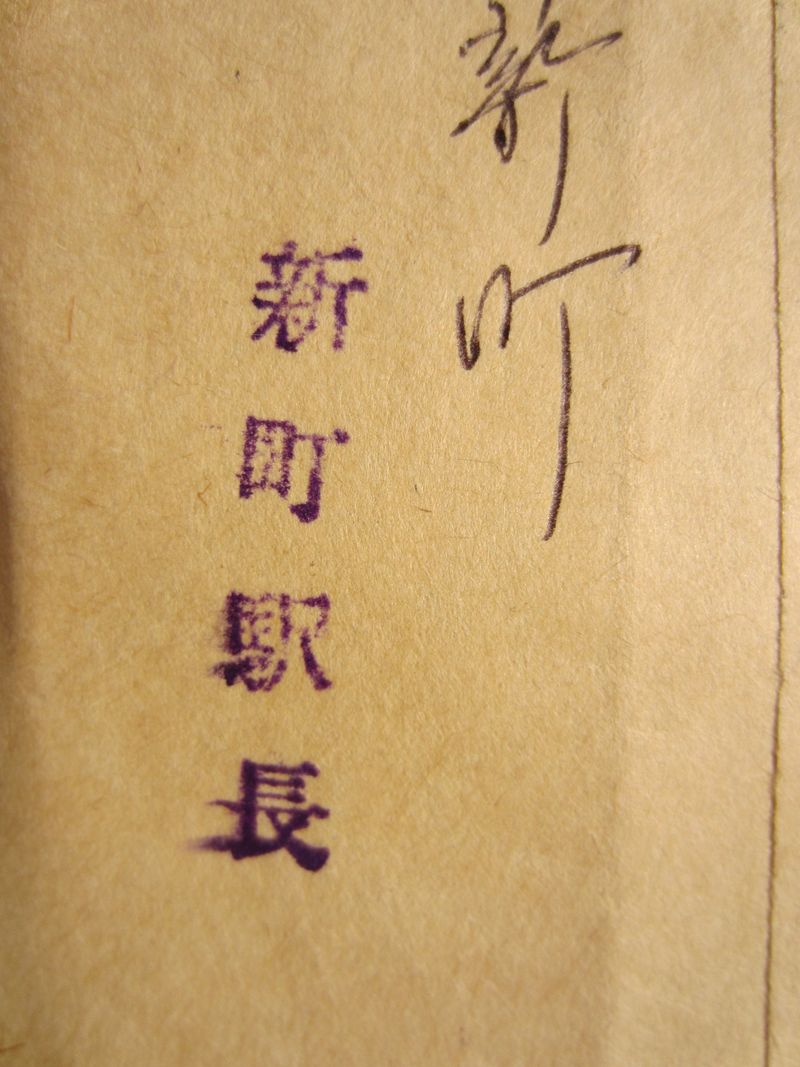 新町
新町駅長